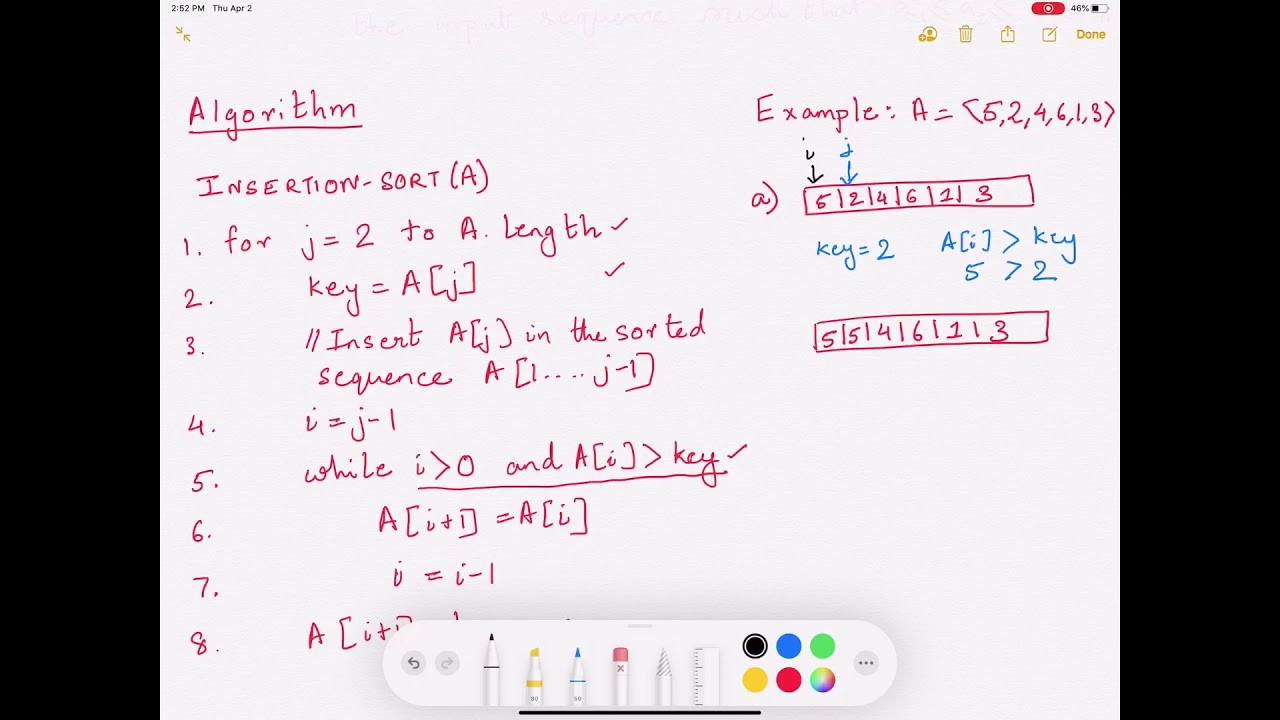 2:52 PM Thu Apr 2
46%
the input sequence such that
Done
Algorithm
INSERTION-SORT(A)
1. for j = 2 to A. length ✓
2. key = A[j] ✓
3. // Insert A[j] in the sorted
sequence A[1....j-1]
4. i = j-1
5. while i>0 and A[i]>key ✓
6. A[i+1] = A[i]
7. i = i-1
8. A[i+1]
Example: A = <5,2,4,6,1,3>
i j
a) 5|2|4|6|1|3
key=2 A[i] > key
5 > 2
5|5|4|6|1|3
80 50